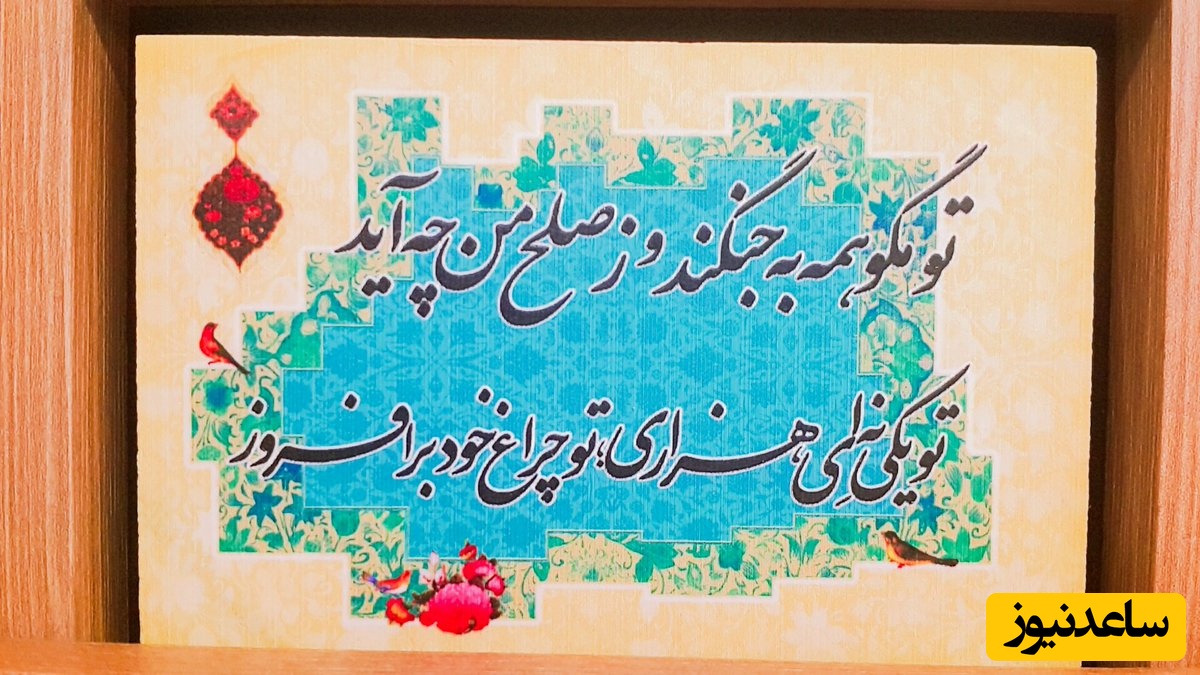 تو مگو همه به جنگند و ز صلح من چه آید
تو یکی نه‌ای هزاری، تو چراغ خود برافروز
ساعدنیوز